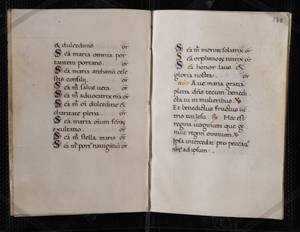 & dulcedinis or
Sca maria omnia por
tantem portans. or
Sca maria archana cele
stis consilij. or
Sca m salus vera or
Sca m advocatrix nra or
Sca m oi dulcedine &
charitate plena. or
Sca maria oium felix
exultatio. or
Sca m stella maris or
Sca m portus navigantiu or
Sca m meroris solatrix or
Sca orphanoru nutrix or
Sca honor laus &
gloria nostra. or
Ave maria gratia
plena dns tecum bened
cta tu in mulieribus.
Et benedictus fructus ui
tuo iesus. Hac est
regina virginum que ge
nuit regem
ipsa intercedat pro peccatis
nris ad ipsum.